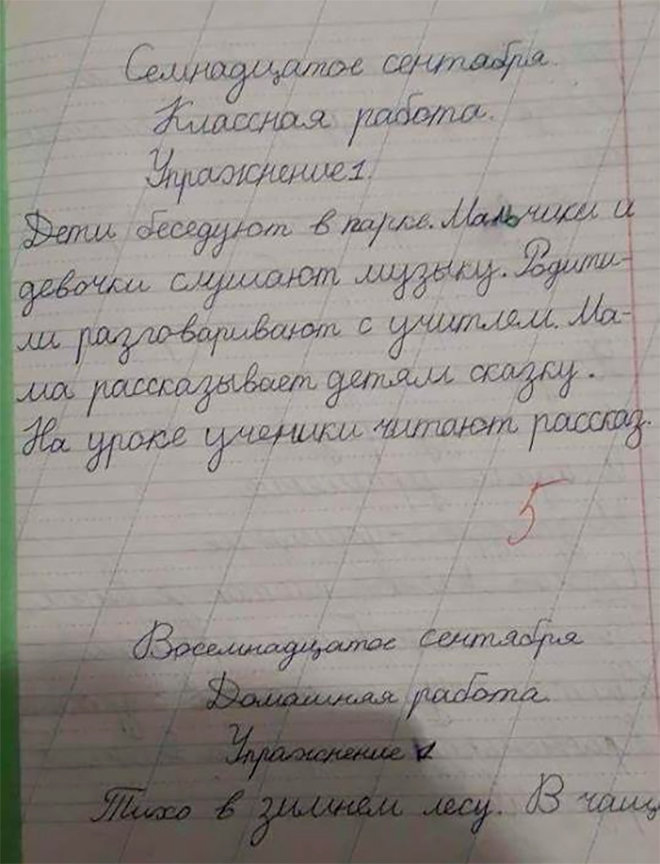 Семнадцатое сентабря.
Классная работа.
Упражнение 1.
Дети беседуют в парке. Мальчики и
девочки слушают музыку. Родити-
ли разговаривают с учитлем. Ма-
ма рассказывает детям сказку.
На уроке ученики читают рассказ.
5
Восемнадцатое сентября
Домашная работа
Упражнение 1
Тихо в зимнем лесу. В чащ